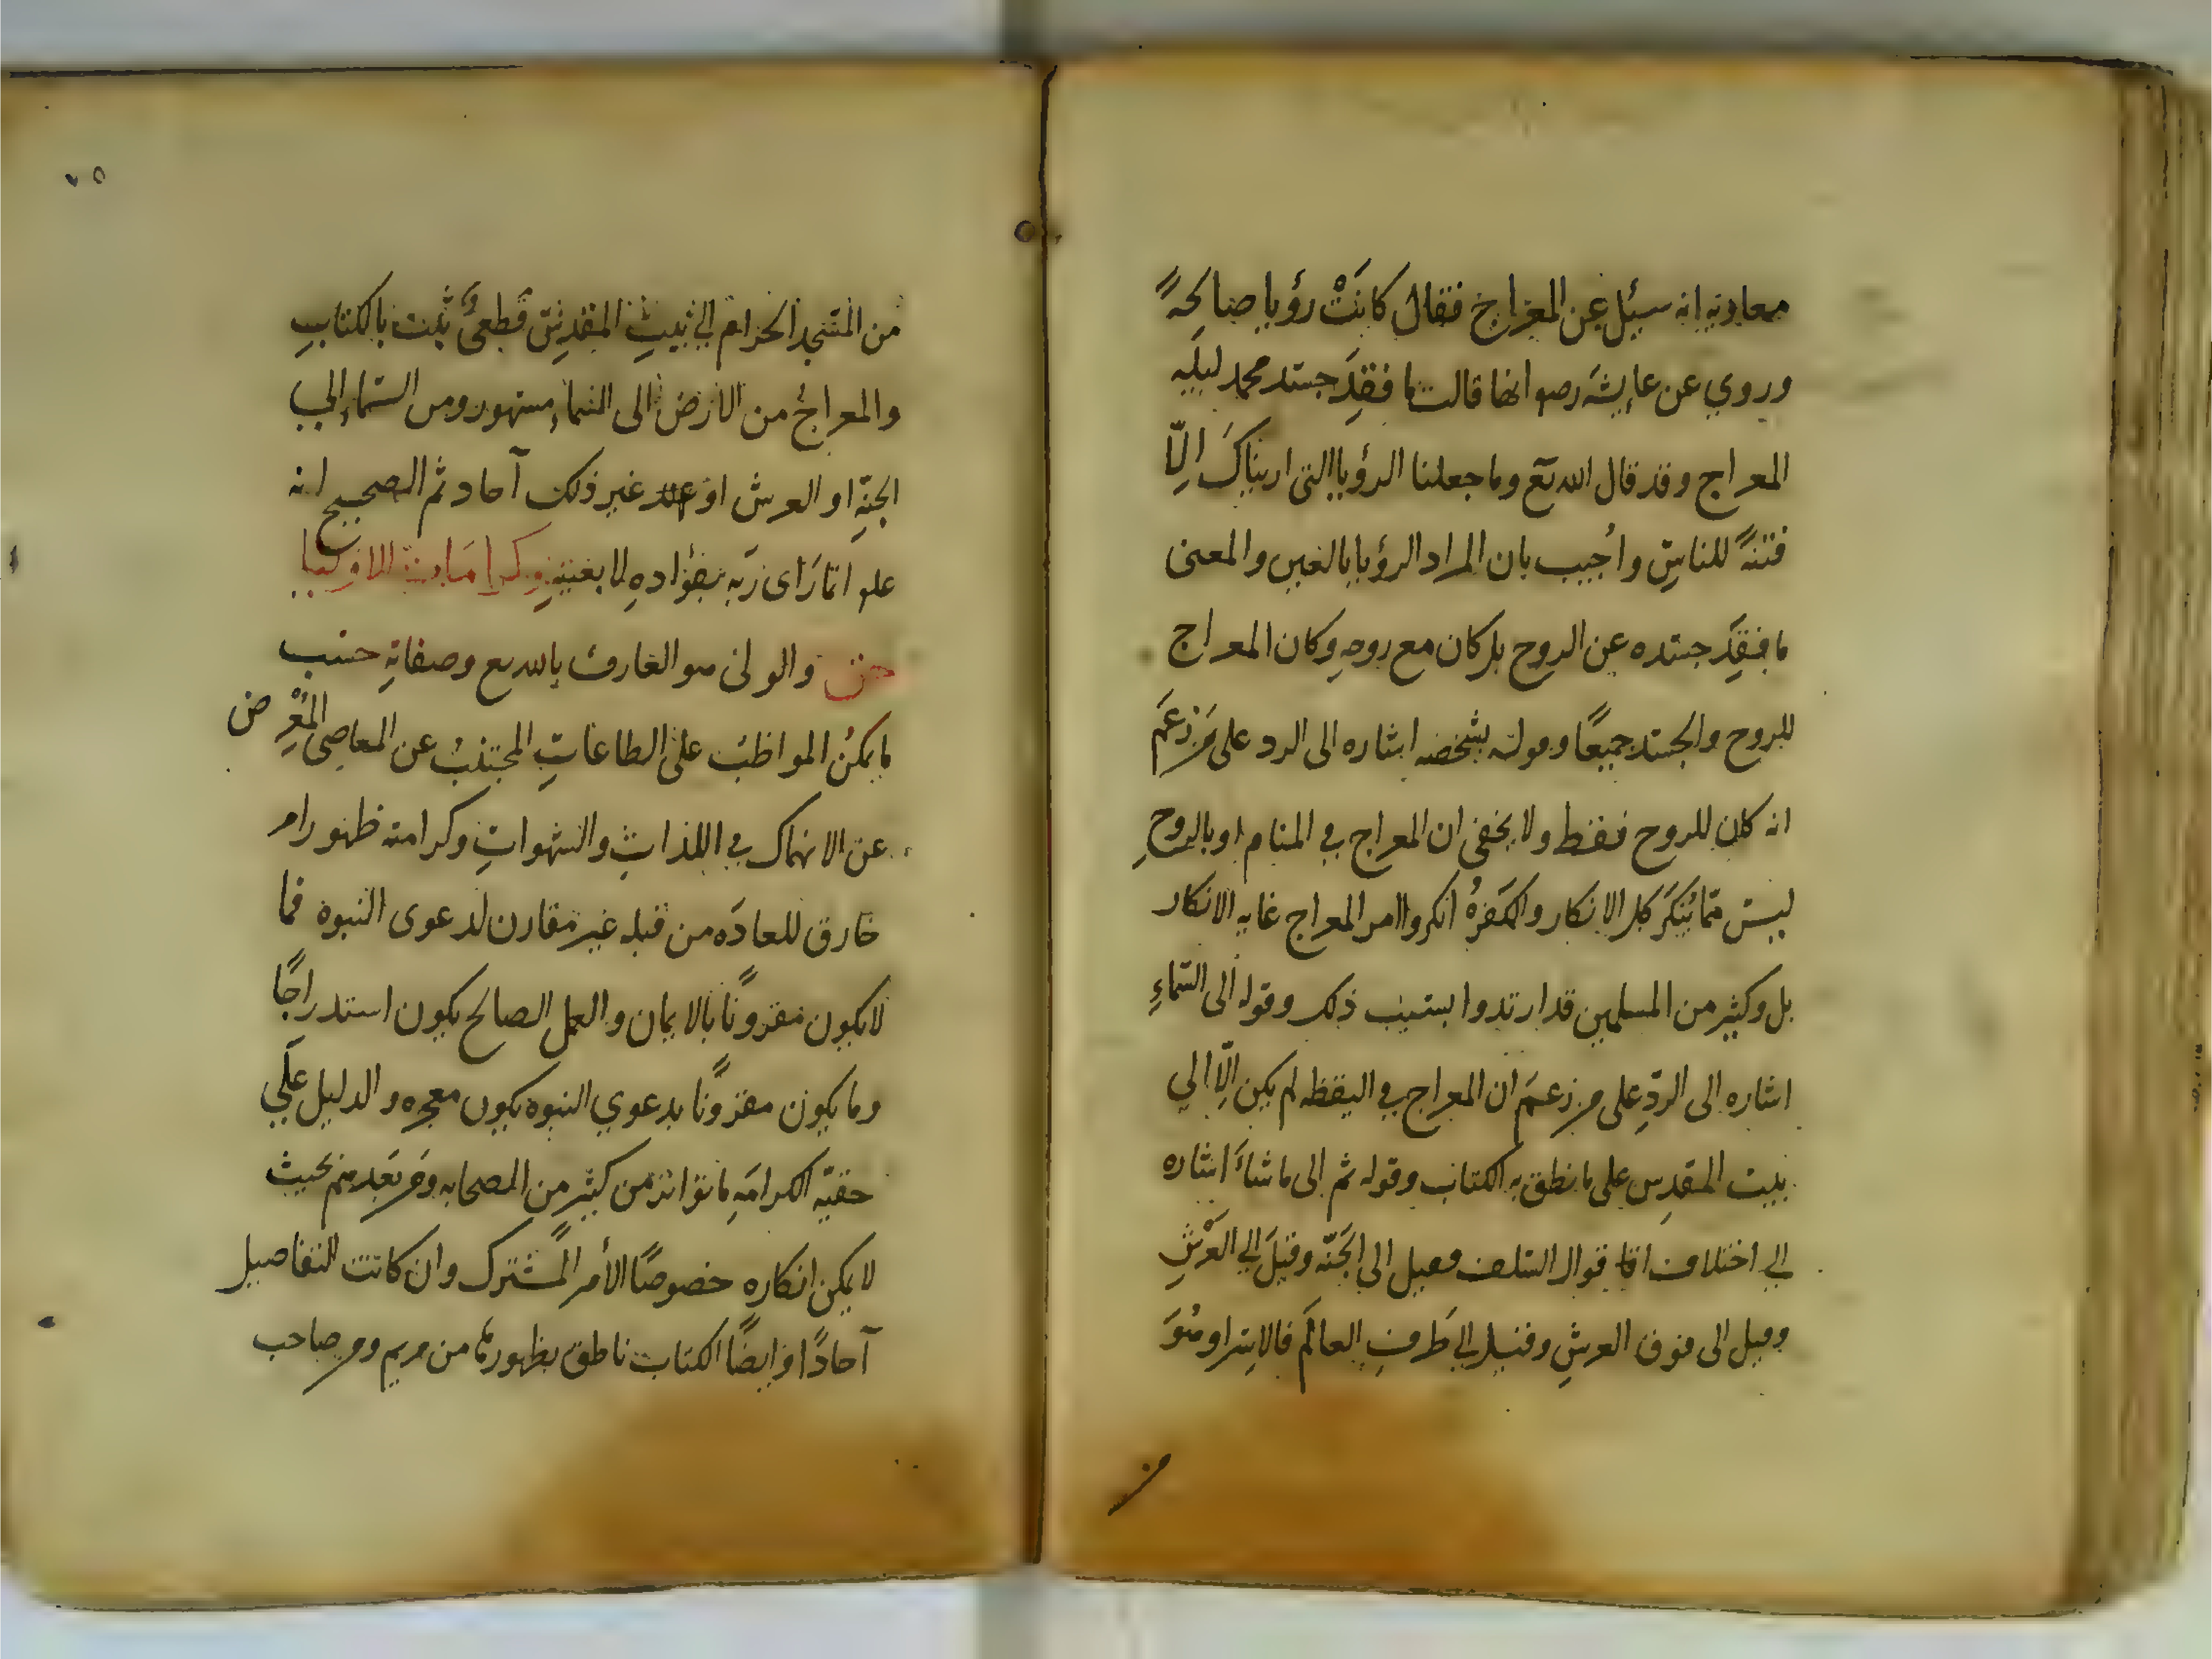 معاويه انه سئل عن المعراج فقال كانَتْ رؤيا صالحةً
وروي عن عايشه رضو انها قالت ما فقِدَ جسد محمد ليلَه
المعراج وقد قال الله تع وما جعلنا الرؤيا التى اريناكَ اِلّا
فتنةً للناسِ واُجيب بان المراد الرؤيا بالعين والمعنى
ما فقِدَ جسده عن الروح بل كان مع روحهِ وكان المعراج
للروح والجسد جميعًا وقوله بشخصه اشاره الى الرد على مَن زعَم
انه كان للروح فقط ولا يخفى ان المعراج في المنام او بالروحِ
ليس ممّا يُنكَرُ كل الانكار والكَفَرةُ انكروا امر المعراج غايه الانكار
بل وكثير من المسلمين قد ارتدوا بسبب ذلك وقوله الى السّماءِ
اشاره الى الردِّ على من زعَم ان المعراج في اليقظه لم يكن اِلّا الي
بيت المقدِسِ على ما نطق به الكتاب وقوله ثم الى ما شاءَ اشاره
الي اختلاف اقا قوال السّلف فقيل الى الجَنّه وقيلَ الي العَرْشِ
وقيل الى فوق العرشِ وقيل الي طَرفِ العالَم فالاِسراء وهُوَ
من
٧٥
من المسجد الحرام الي بيتِ المقدِسِ قطعىٌّ ثبت بالكتابِ
والمعراجُ من الارض الى السّماءِ مشهور ومن السّماءِ الي
الجنّةِ او العرش او غير ذلك آحاد ثم الصحيح انه
علو انما رَاى ربّه بفؤادهِ لا بعينهِ وكرامات الاوليا
حق والولى هو العارف بالله تع وصفاتهِ حسب
ما يمكنُ المواظبُ على الطاعاتِ المجتنبُ عن المعاصى المُعْرِض
عن الانهماك في اللذاتِ والشهواتِ وكرامته ظهور امر
خارق للعادَه من قبله غير مقارن لدعوى النبوه فما
لا يكون مقرونًا بالايمان والعمل الصالح يكون استدراجًا
وما يكون مقرونًا بدعوي النبوه يكون معجزه والدليل عَلَي
حقيّه الكرامَهِ ما تواتر من كثيرٍ من الصحابه ومَن بَعدهم بحيث
لا يمكن انكاره خصوصًا الأمر المُشترك وان كانت التفاصيل
آحادًا وايضًا الكتاب ناطق بظهورها من مريم ومن صاحب